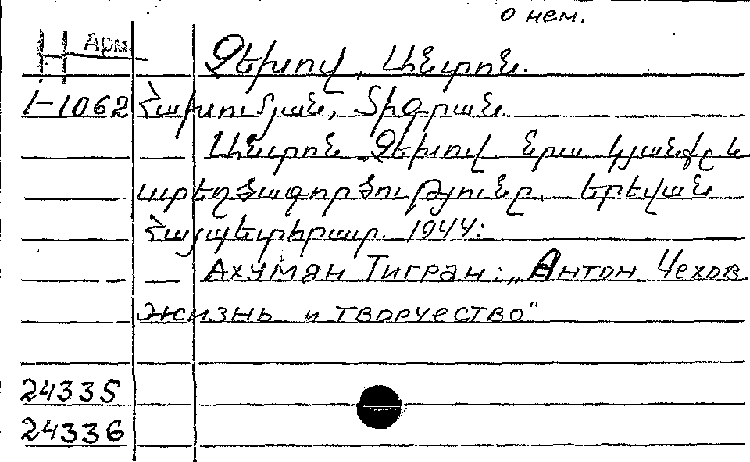 о нем.
Арм
Չեխով, Անտոն.
I-1062 Հախումյան, Տիգրան
Անտոն Չեխով նրա կյանքը և
ստեղծագործությունը. Երեվան
Հայպետհրատ. 1944:
Ахумян Тигран: „Антон Чехов
жизнь и творчество"
24335
24336